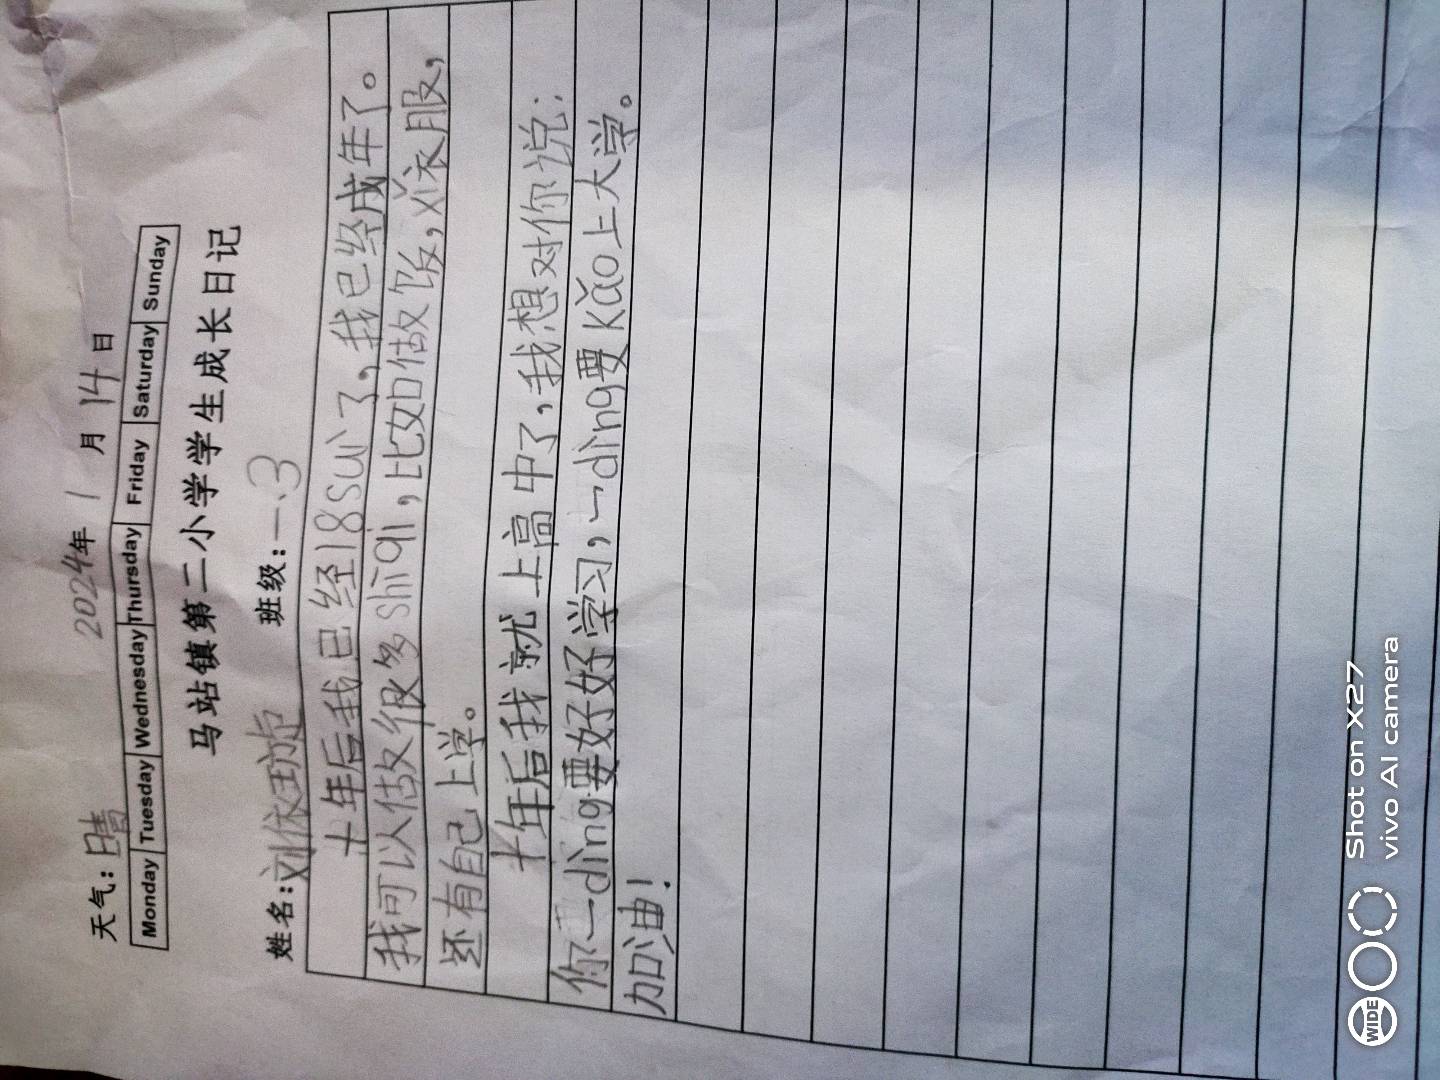 天气：晴 2024年1月14日
Monday Tuesday Wednesday Thursday Friday Saturday Sunday
马站镇第二小学学生成长日记
姓名：刘依 班级：一.3
十年后我已经18suì了，我已经成年了。
我可以做很多shìqi，比如做饭，xǐ衣服，
还有自己上学。
十年后我就上高中了，我想对你说：
你一dìng要好好学习，一dìng要kǎo上大学。
加油！
WIDE
Shot on X27
vivo AI camera